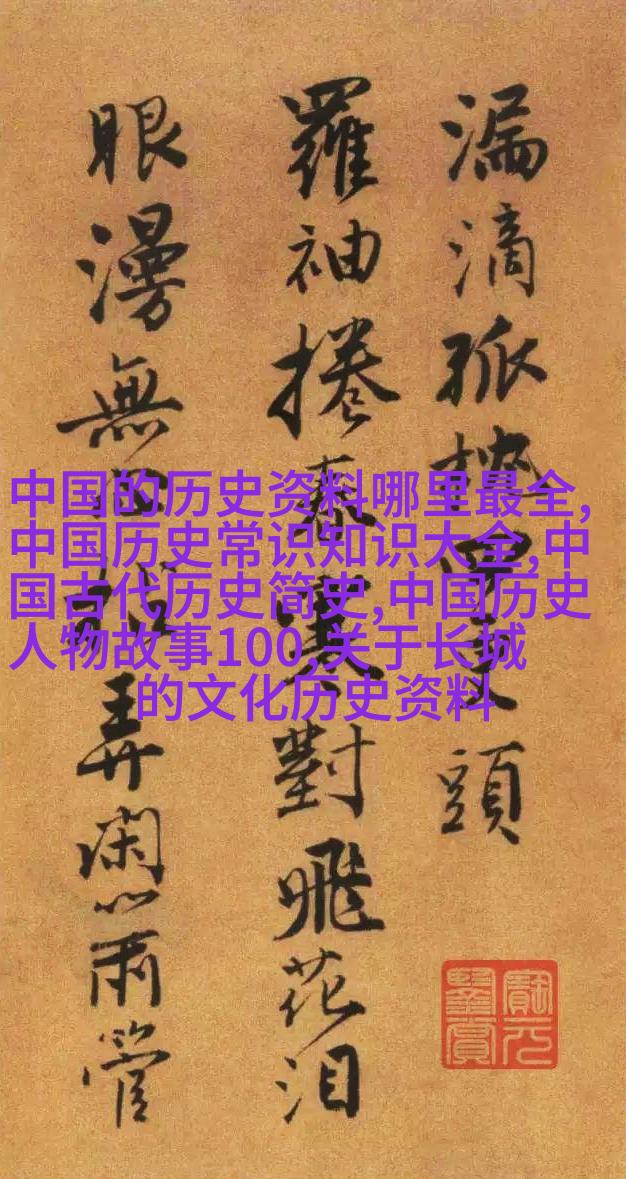 漏滴孤頭
羅袖捲春寒對飛花泪
眼漫無弄閑心兩管
寶元
鑒賞
中国的历史资料哪里最全,
中国历史常识知识大全,中
国古代历史简史,中国历史
人物故事100,关于长城
的文化历史资料